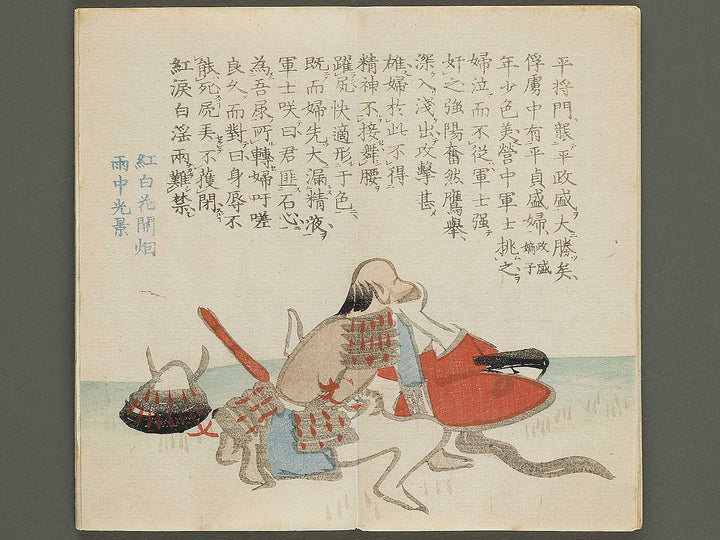 平将門襲平政盛大勝矣
俘虜中有平貞盛婦政盛嫡子
年少色美營中軍士挑之
婦泣而不従軍士强
奸之强陽奮然鷹擧
深入淺出攻擊甚
雄婦於此不得
精神不接舞腰
躍尻快適形于色
既而婦先大漏精液
軍士咲曰君匪石心
為吾尿所轉婦吁嗟
良久而對曰身辱不
能死屍美不獲閉
紅淚白淫兩難禁
紅白花開烟
雨中光景